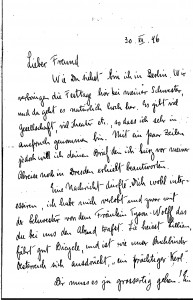 30. XII. 96
Lieber Freund
Wie Du siehst bin ich in Berlin. Wir
verbringen die Festtage hier bei meiner Schwester,
und da geht es natürlich hoch her. Es gibt viel
Gesellschaft, viel Leute etc., so dass ich sehr in
Anspruch genommen bin. Mit ein paar Zeilen
jedoch will ich deinen Brief den ich kurz vor meiner
Abreise noch in Dresden erhielt beantworten.
Eine Nachricht dürfte Dich wohl inter-
essieren, ich habe mich verlobt und zwar mit
der Schwester von dem Fräulein
du bei uns den Abend trafst. Sie heisst
fährt gut Bicycle, und ist wie unser
sich ausdrückt, "ein prächtiger Kerl".
Dir muss es ja grossartig gehen!